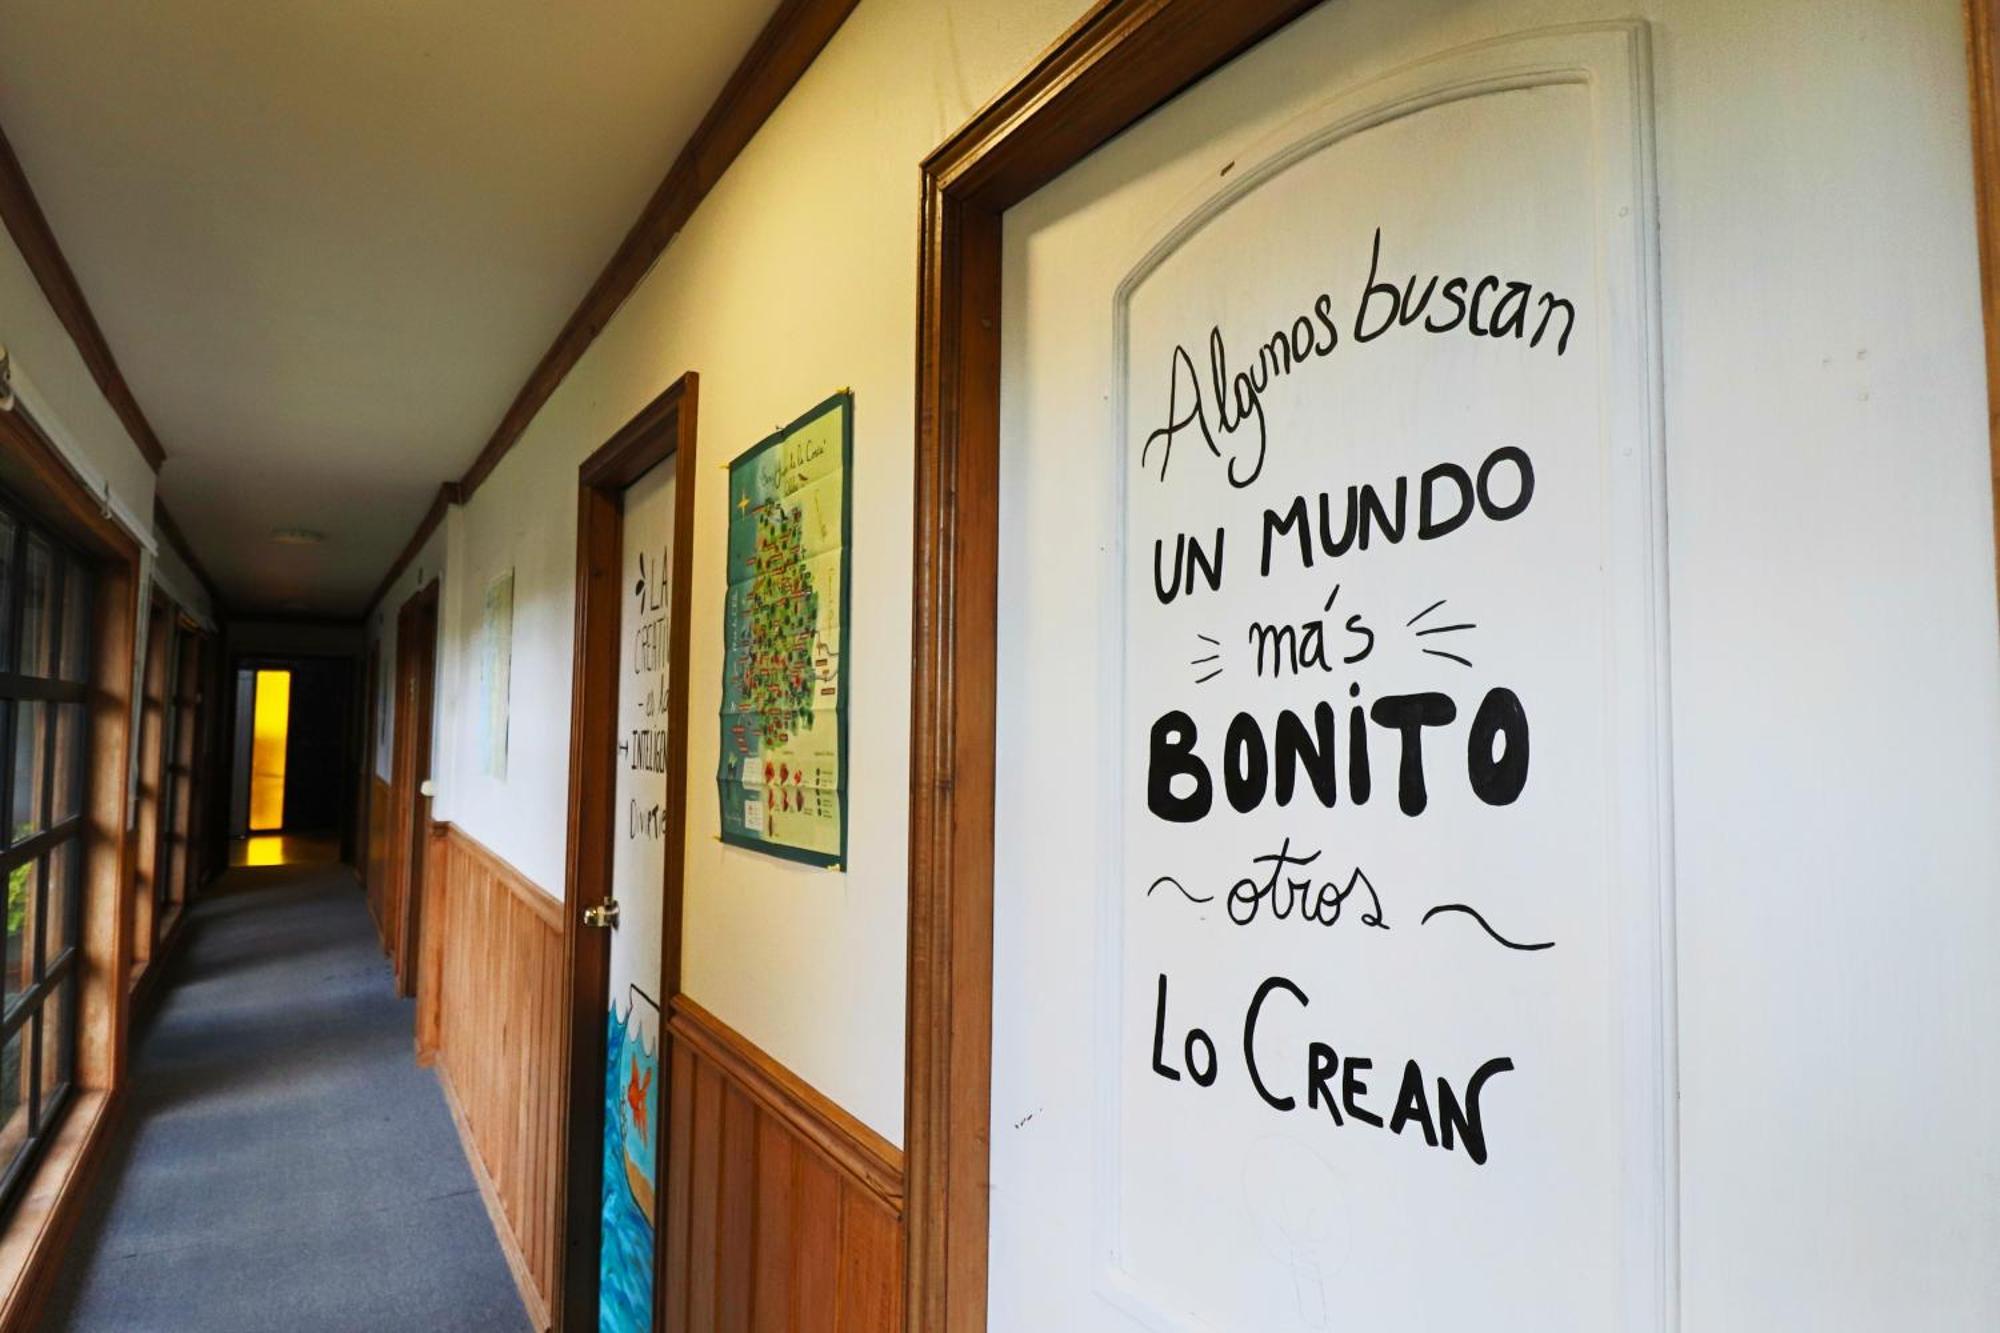 Algunos buscan
UN MUNDO
más
BONiTO
otros
Lo CREAN
LA
CREATIV
- es la
INTELIGEN
DIVIRTIE